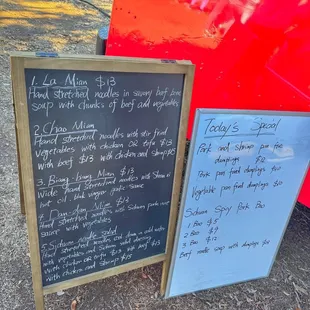 1. La Mian $13
Hand stretched noodles in savory bone
soup with chunks of beef and vegetables.
2. Chao Mian
Hand stretched noodles with stir fried
vegetables with chicken OR tofu $13
with beef $13 with chicken and shrimp $15
3. Biang-biang Mian $13
Wide hand stretched noodles with
hot oil
4. Dan-dan Mian $12
Hand stretched noodles with
sauce with vegetables
5. Sichuan noodle salad
Hand stretched noodles and in a cold
with vegetables and Sichuan with beef $13
with chicken OR tofu
with chicken and shrimp $15
Today's Special
Pork and shrimp pan fried
dumplings $12
Pork pan fried dumplings $10
Vegetable pan fried dumplings $10
Sichuan Spicy Pork Bao
1 Bao $5
2 Bao $9
3 Bao $12
Beef noodle soup with dumplings